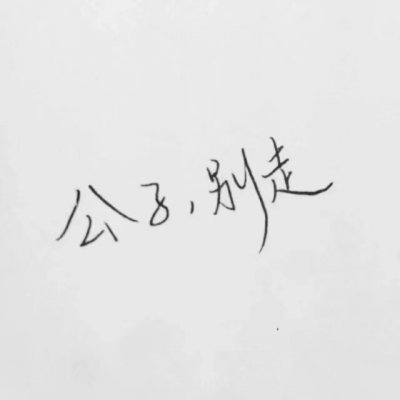 公子,别走